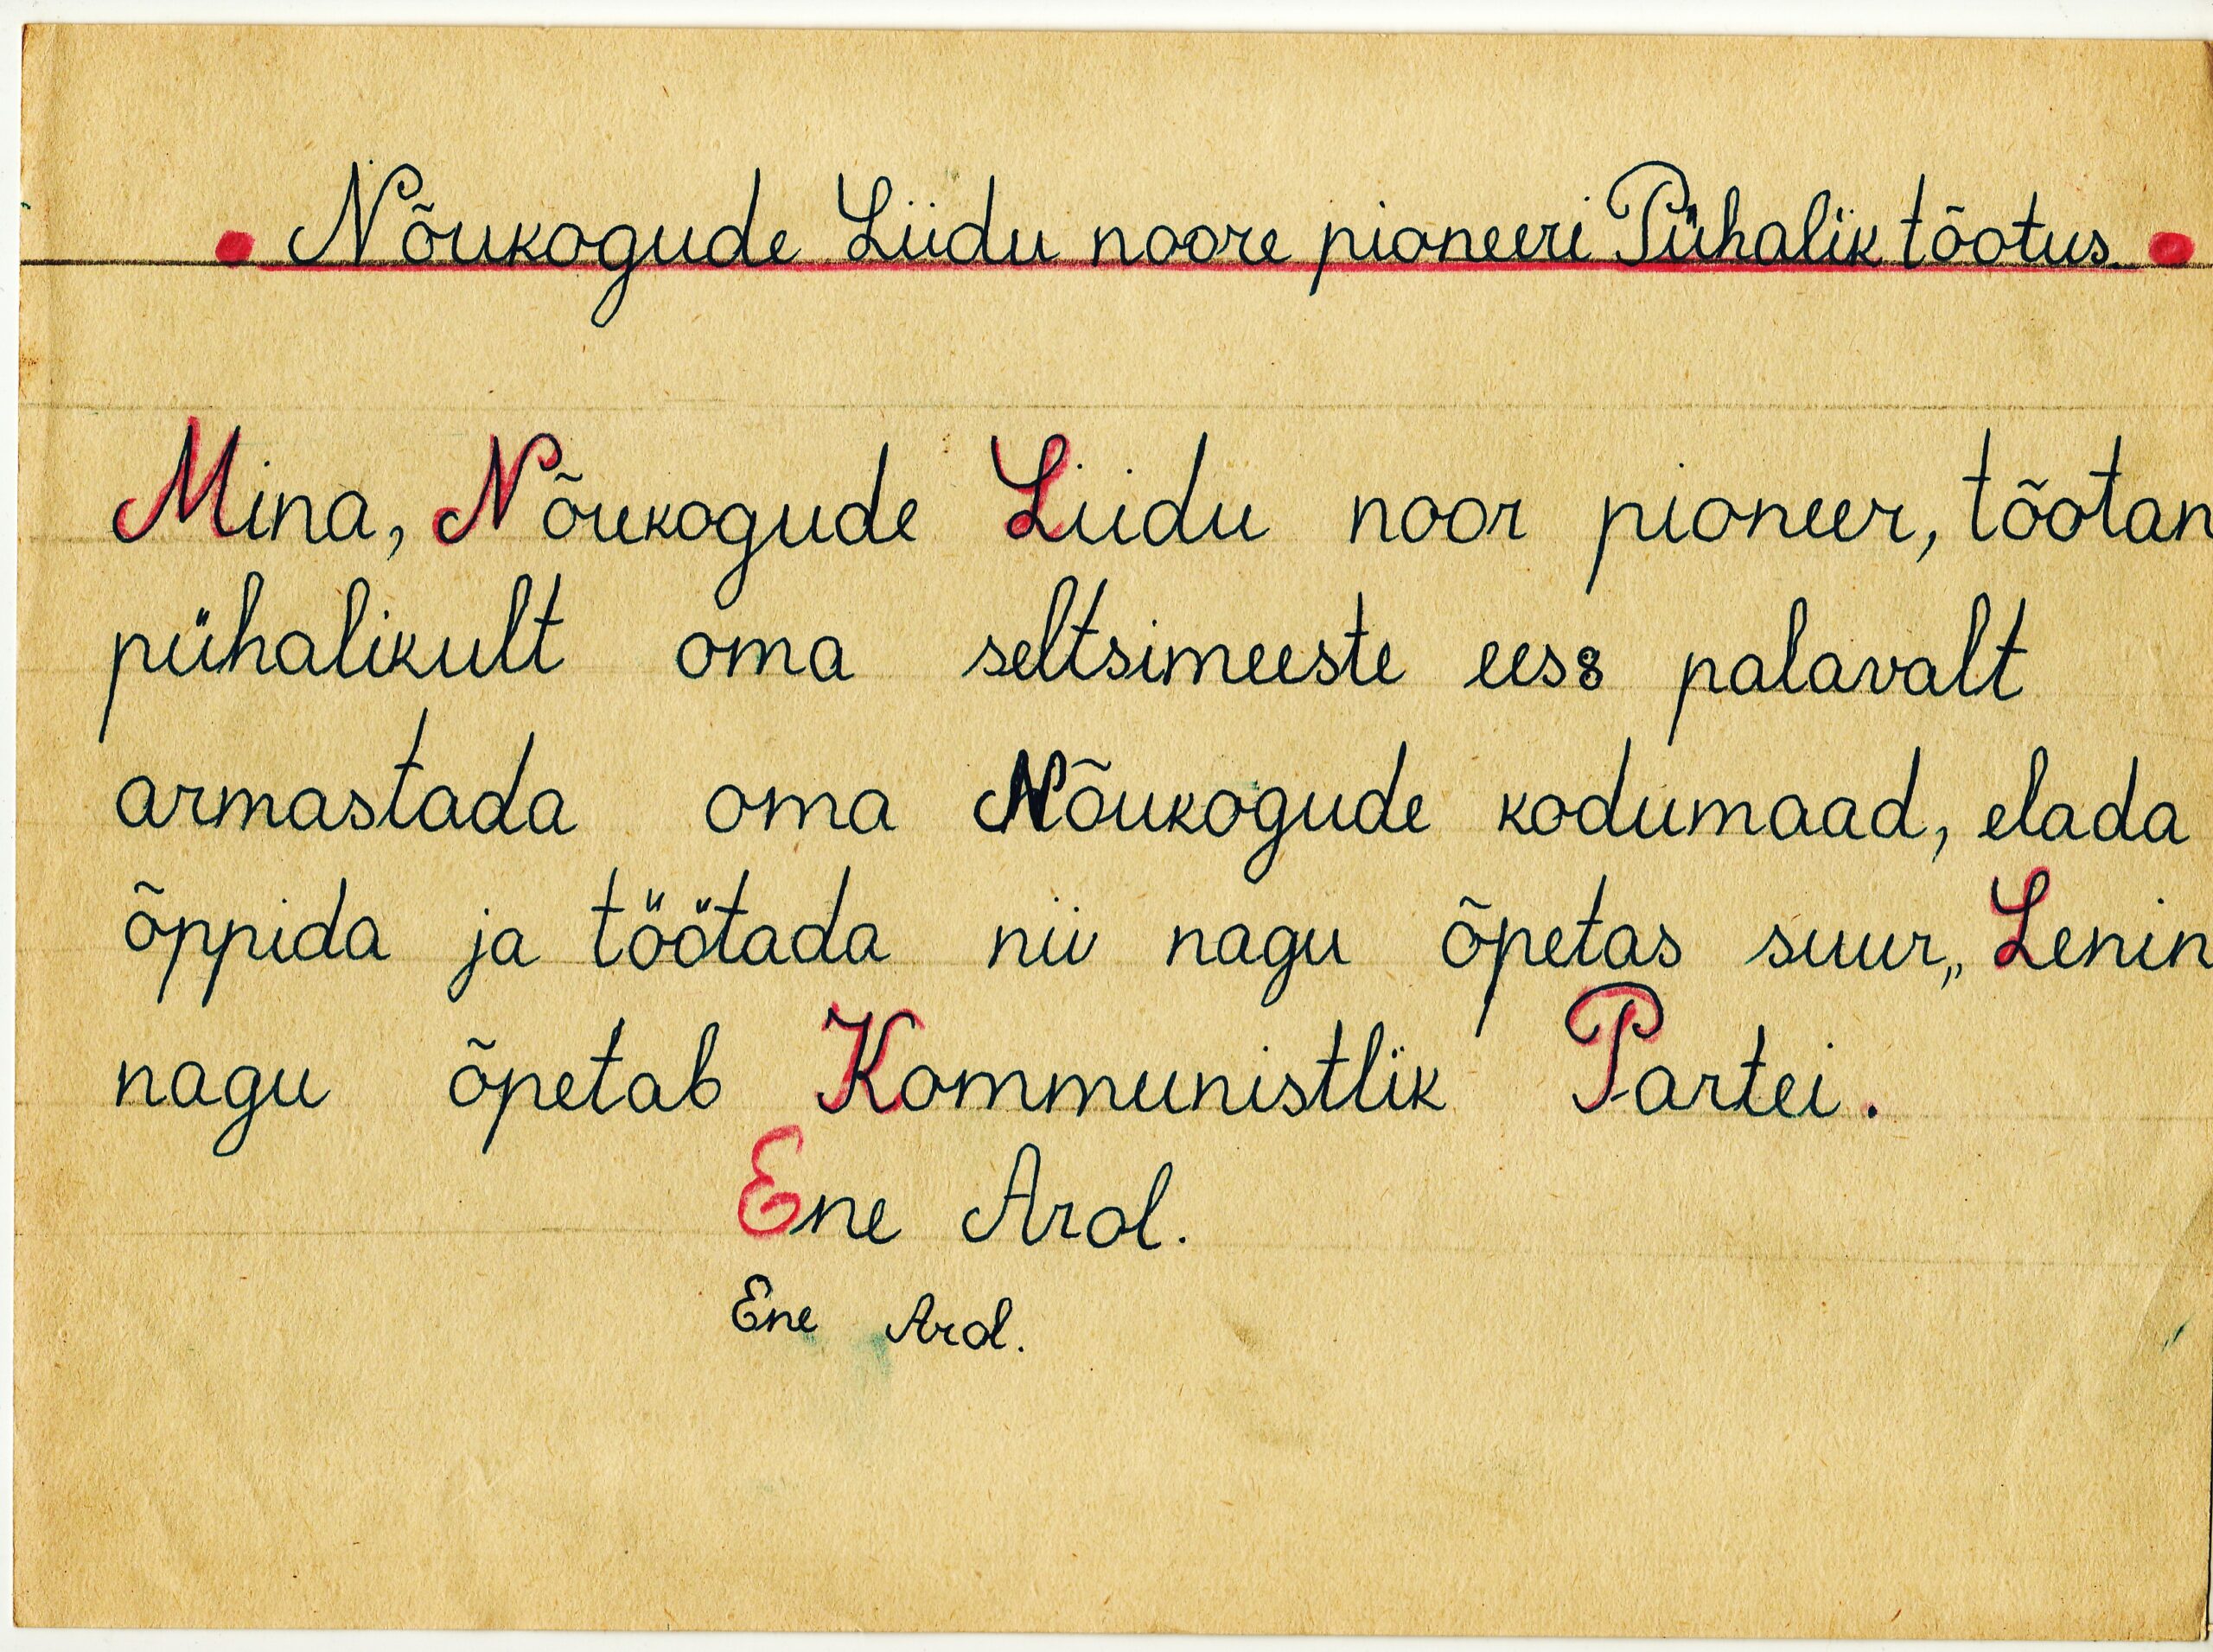 Nõukogude Liidu noore pioneeri Pühalik tõotus.
Mina, Nõukogude Liidu noor pioneer, tõotan
pühalikult oma seltsimeeste ees: palavalt
armastada oma Nõukogude kodumaad, elada
õppida ja töötada nii nagu õpetas suur,, Lenin
nagu õpetab Kommunistlik Partei.
Ene Arol.
Ene Arol.